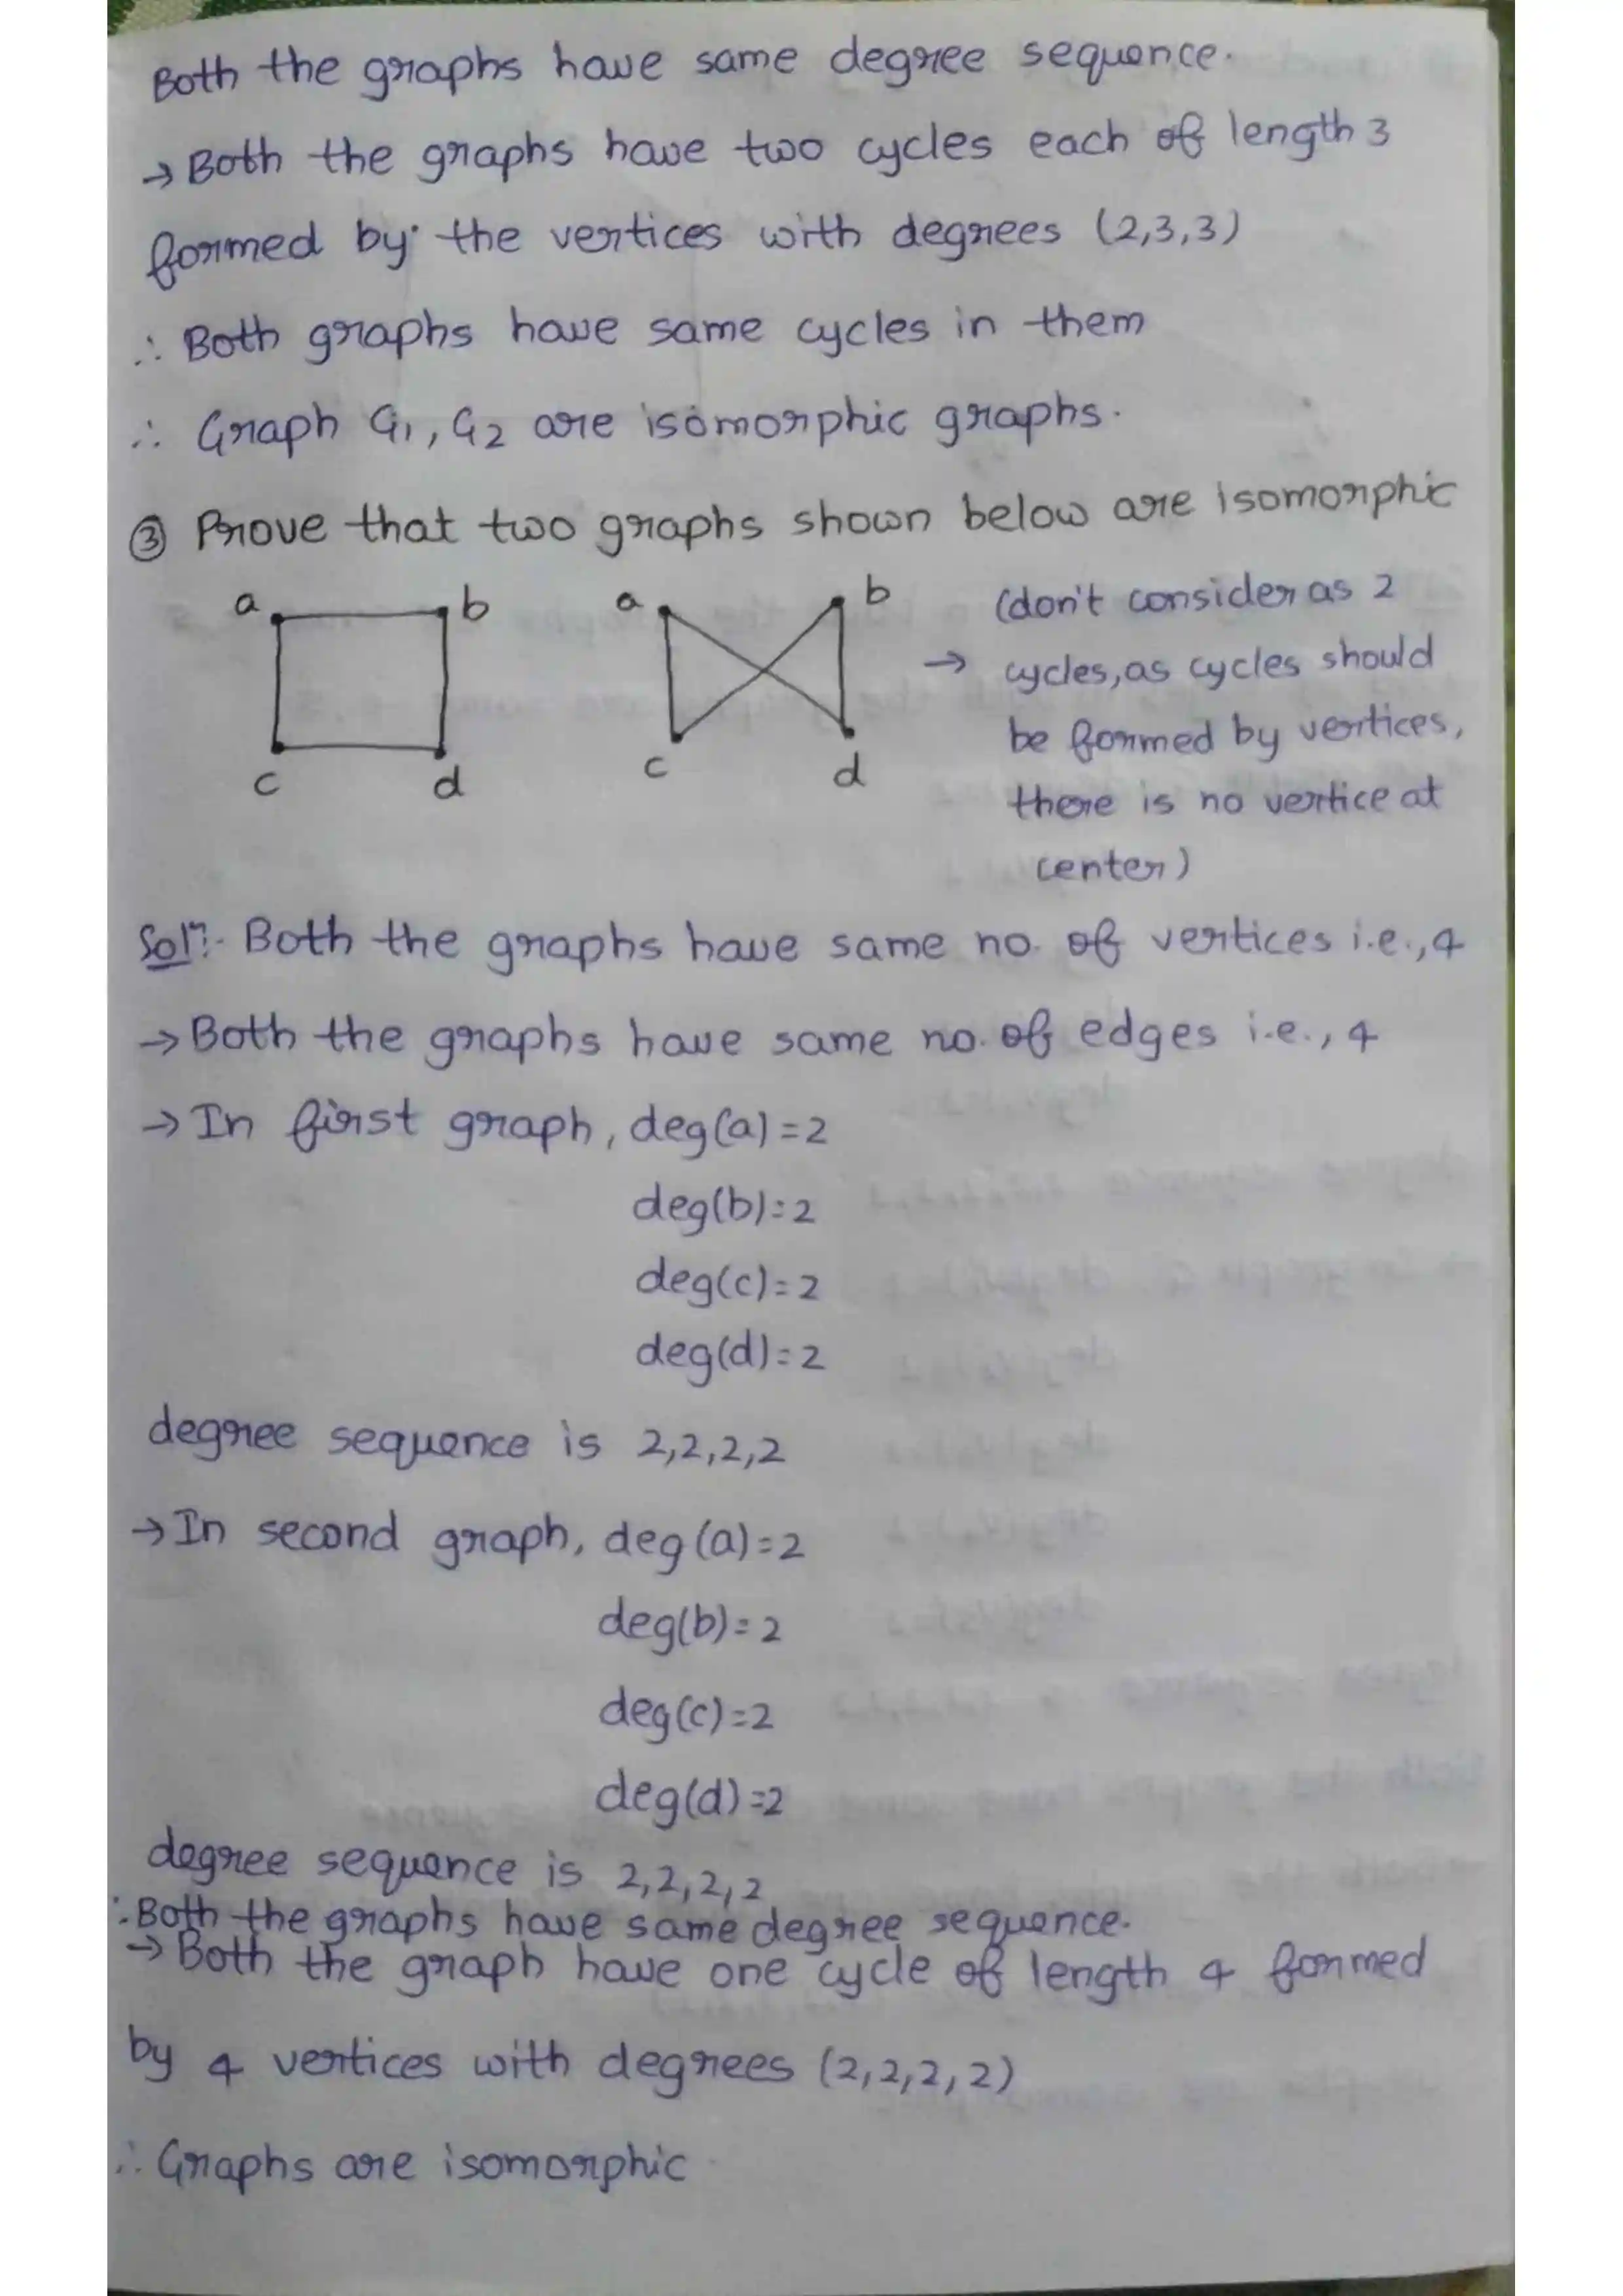 Both the graphs have same degree sequence.
→ Both the graphs have two cycles each of length 3
formed by the vertices with degrees (2,3,3)
∴ Both graphs have same cycles in them
∴ Graph G1, G2 are isomorphic graphs.
③ Prove that two graphs shown below are isomorphic
a b a b
c d c d
→ (don't consider as 2
cycles, as cycles should
be formed by vertices,
there is no vertice at
center)
Solⁿ:- Both the graphs have same no. of vertices i.e., 4
→ Both the graphs have same no. of edges i.e., 4
→ In first graph, deg(a) = 2
deg(b) = 2
deg(c) = 2
deg(d) = 2
degree sequence is 2,2,2,2
→ In second graph, deg(a) = 2
deg(b) = 2
deg(c) = 2
deg(d) = 2
degree sequence is 2,2,2,2
∴ Both the graphs have same degree sequence.
→ Both the graph have one cycle of length 4 formed
by 4 vertices with degrees (2,2,2,2)
∴ Graphs are isomorphic